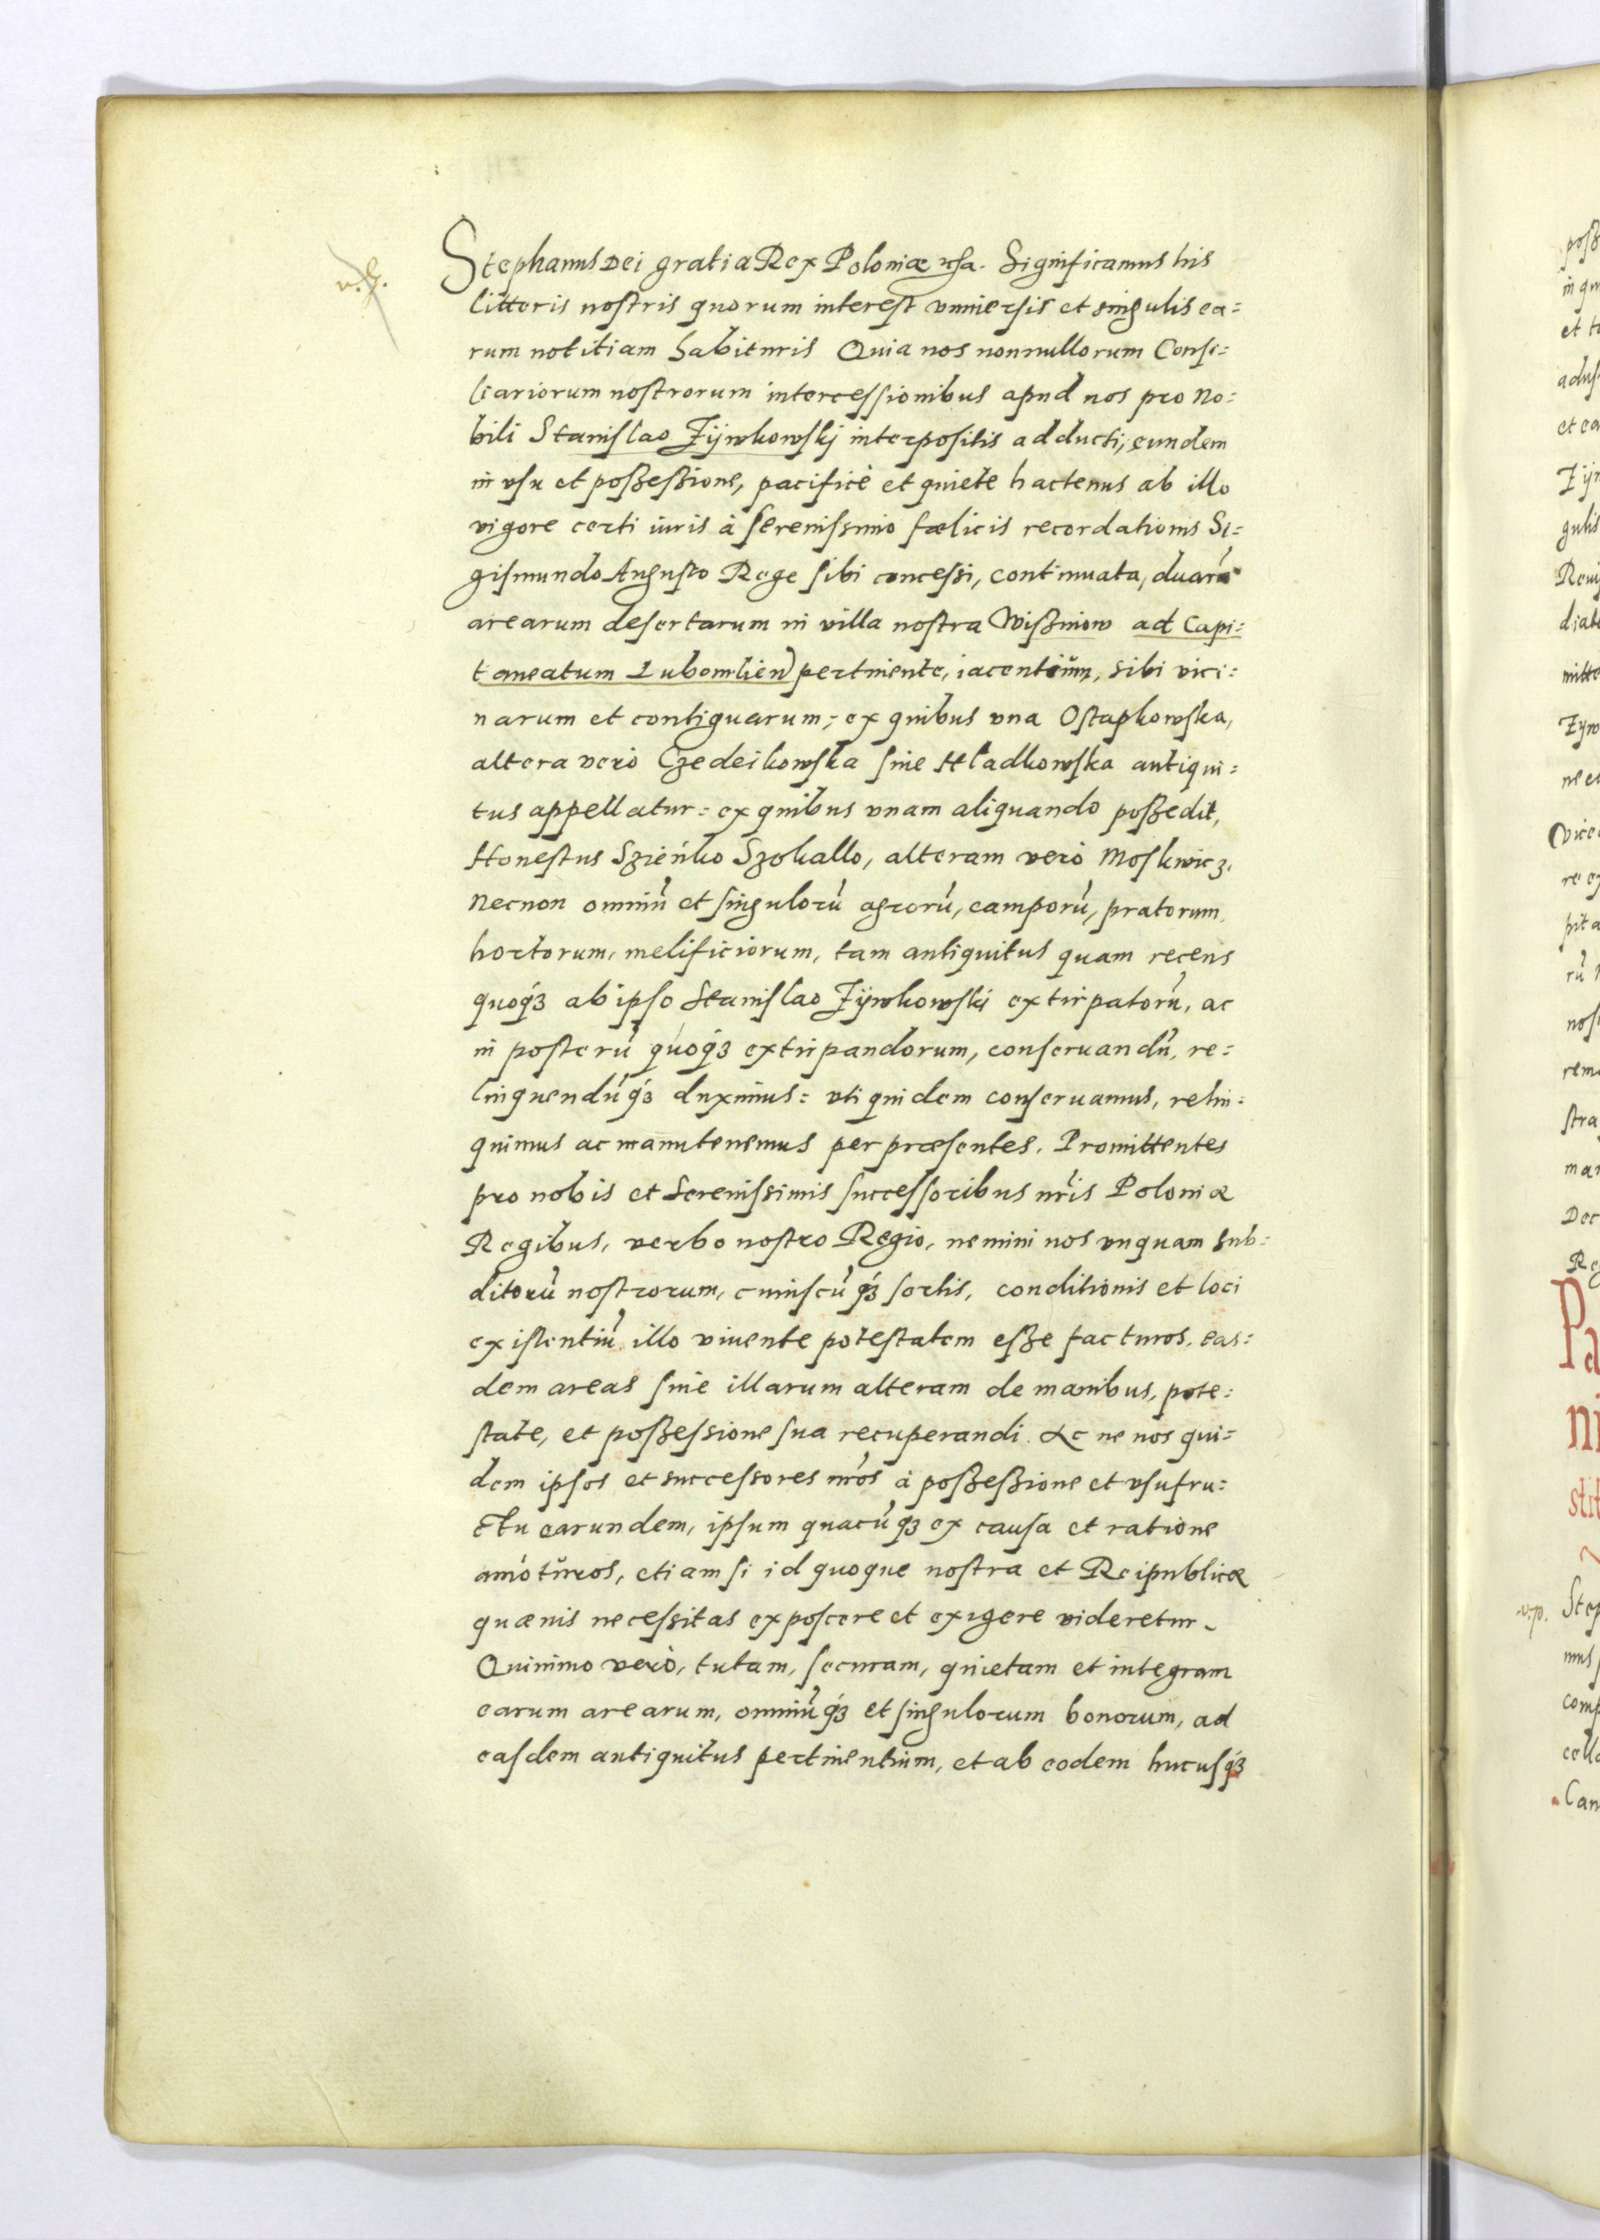 Stephanus Dei gratia Rex Poloniæ etc̃a. Significamus his
litteris nostris quorum interest vniuersis et singulis ea=
rum notitiam habituris Quia nos nonnullorum Consi=
liariorum nostrorum intercessionibus apud nos pro No=
bili Stanislao Zÿwkowskj interpositis adducti, eundem
in vsu et poßeßione, pacificè et quietè hactenus ab illo
vigore certi iuris à serenissimo fœlicis recordationis Si=
gismundo Augusto Rege sibi concessi, continuata, duarũ
arearum desertarum in villa nostra Wißniow ad Capi=
taneatum Lubomlien̄ pertinente, iacentiũm, sibi vici=
narum et contiguarum; ex quibus vna Ostapkowska,
altera verò Czedeikowska siue Hladkowska antiqui=
tus appellatur: ex quibus vnam aliquando poßedit,
Honestus Szieńko Szokallo, alteram verò Moskwicz,
necnon omniũ et singulorũ agrorũ, camporũ, pratorum,
hortorum, melificiorum, tam antiquitus quam recens
quoqꝫ ab ipso Stanislao Zÿwkowski extirpatorũ, ac
in posterũ quoqꝫ extirpandorum, conseruandũ, re=
linquendũqꝫ duximus: vti quidem conseruamus, relin=
quimus ac manutenemus per præsentes. Promittentes
pro nobis et Serenissimis successoribus nr̃is Poloniæ
Regibus, verbo nostro Regio, nemini nos vnquam sub=
ditorũ nostrorum, cuiuscũqꝫ sortis, conditionis et loci
existentiũ illo viuente potestatem eße facturos, eas=
dem areas siue illarum alteram de manibus, pote=
state, et poßessione sua recuperandi. Ac ne nos qui=
dem ipsos et successores nr̃os à poßeßione et vsufru=
ctu earundem, ipsum quacũqꝫ ex causa et ratione
amoturos, etiam si id quoque nostra et Reipublicæ
quæuis necessitas exposcere et exigere videretur.
Quinimo verò, tutam, securam, quietam et integram
earum arearum, omniũqꝫ et singulorum bonorum, ad
easdem antiquitus pertinentium, et ab eodem hucusqꝫ